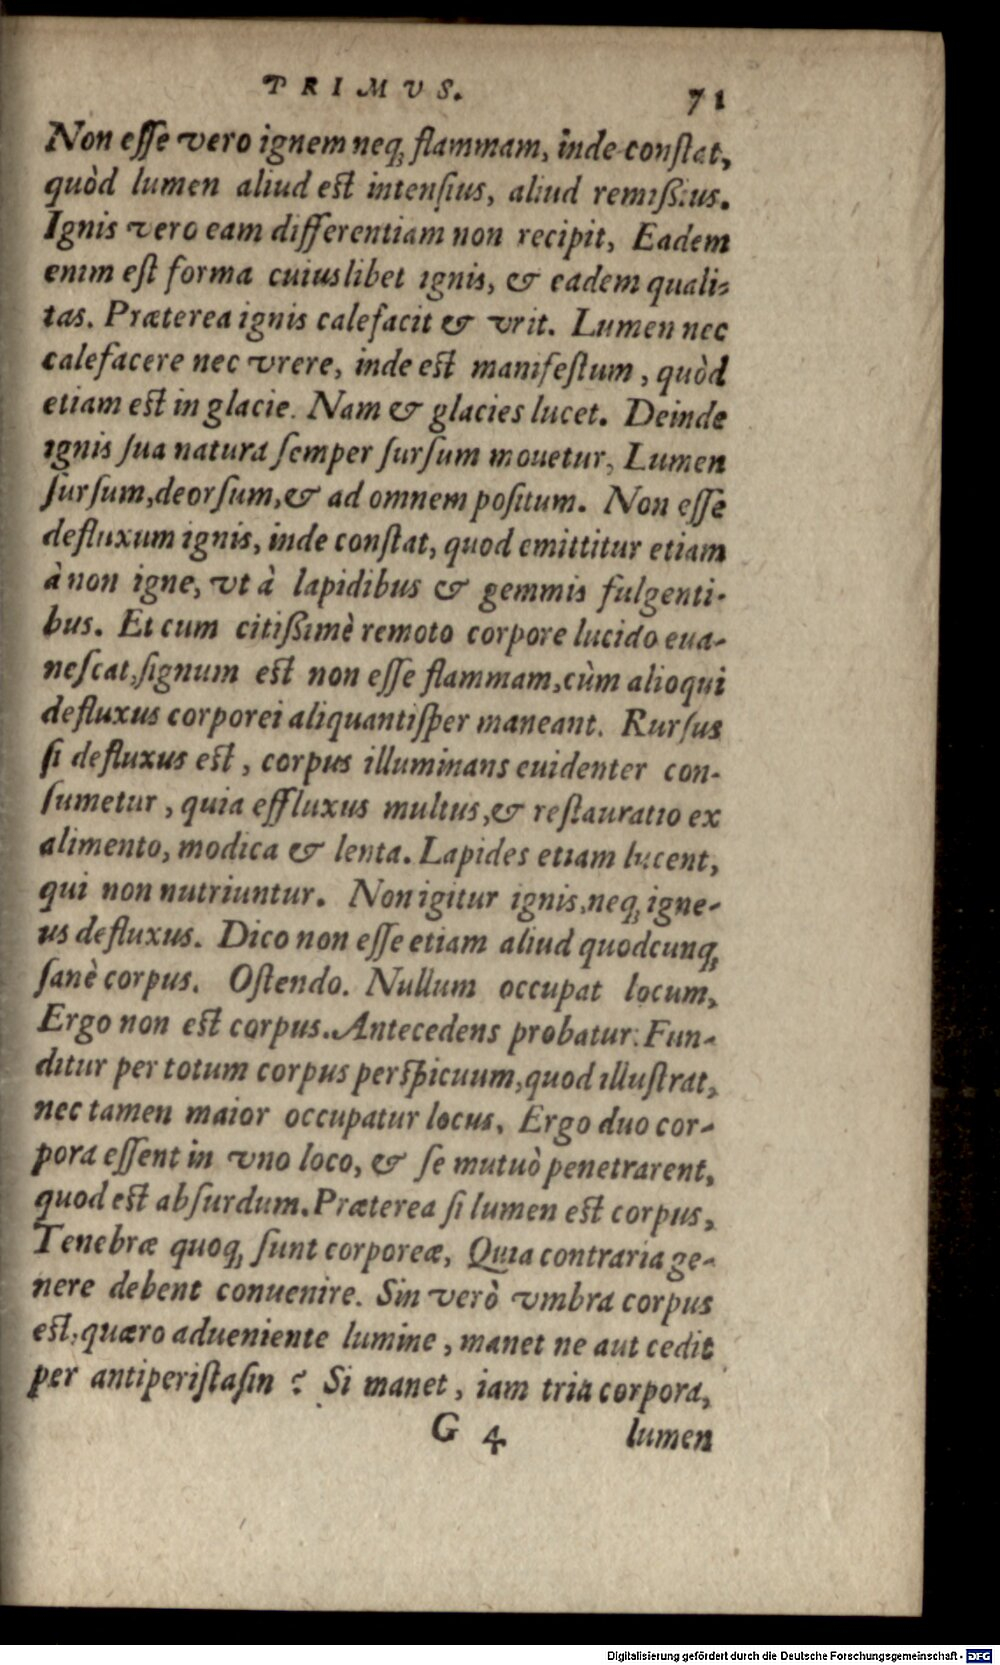 TRIMVS. 71
Non eſſe vero ignem neq; flammam, inde conſtat,
quòd lumen aliud eſt intenſius, aliud remiſsius.
Ignis vero eam differentiam non recipit, Eadem
enim eſt forma cuiuslibet ignis, & eadem quali-
tas. Præterea ignis calefacit & vrit. Lumen nec
calefacere nec vrere, inde eſt manifeſtum, quòd
etiam eſt in glacie. Nam & glacies lucet. Deinde
ignis ſua natura ſemper ſurſum mouetur, Lumen
ſurſum, deorſum, & ad omnem poſitum. Non eſſe
defluxum ignis, inde conſtat, quod emittitur etiam
à non igne, vt à lapidibus & gemmis fulgenti-
bus. Et cum citiſsimè remoto corpore lucido eua-
neſcat, ſignum eſt non eſſe flammam, cùm alioqui
defluxus corporei aliquantiſper maneant. Rurſus
ſi defluxus eſt, corpus illuminans euidenter con-
ſumetur, quia effluxus multus, & reſtauratio ex
alimento, modica & lenta. Lapides etiam lucent,
qui non nutriuntur. Non igitur ignis, neq; igne-
us defluxus. Dico non eſſe etiam aliud quodcunq;
ſanè corpus. Oſtendo. Nullum occupat locum,
Ergo non eſt corpus. Antecedens probatur: Fun-
ditur per totum corpus perſpicuum, quod illuſtrat,
nec tamen maior occupatur locus. Ergo duo cor-
pora eſſent in vno loco, & ſe mutuò penetrarent,
quod eſt abſurdum. Præterea ſi lumen eſt corpus,
Tenebræ quoq; ſunt corporeæ, Quia contraria ge-
nere debent conuenire. Sin verò vmbra corpus
eſt, quæro adueniente lumine, manet ne aut cedit
per antiperiſtaſin? Si manet, iam tria corpora,
G 4 lumen
Digitalisierung gefördert durch die Deutsche Forschungsgemeinschaft - DFG